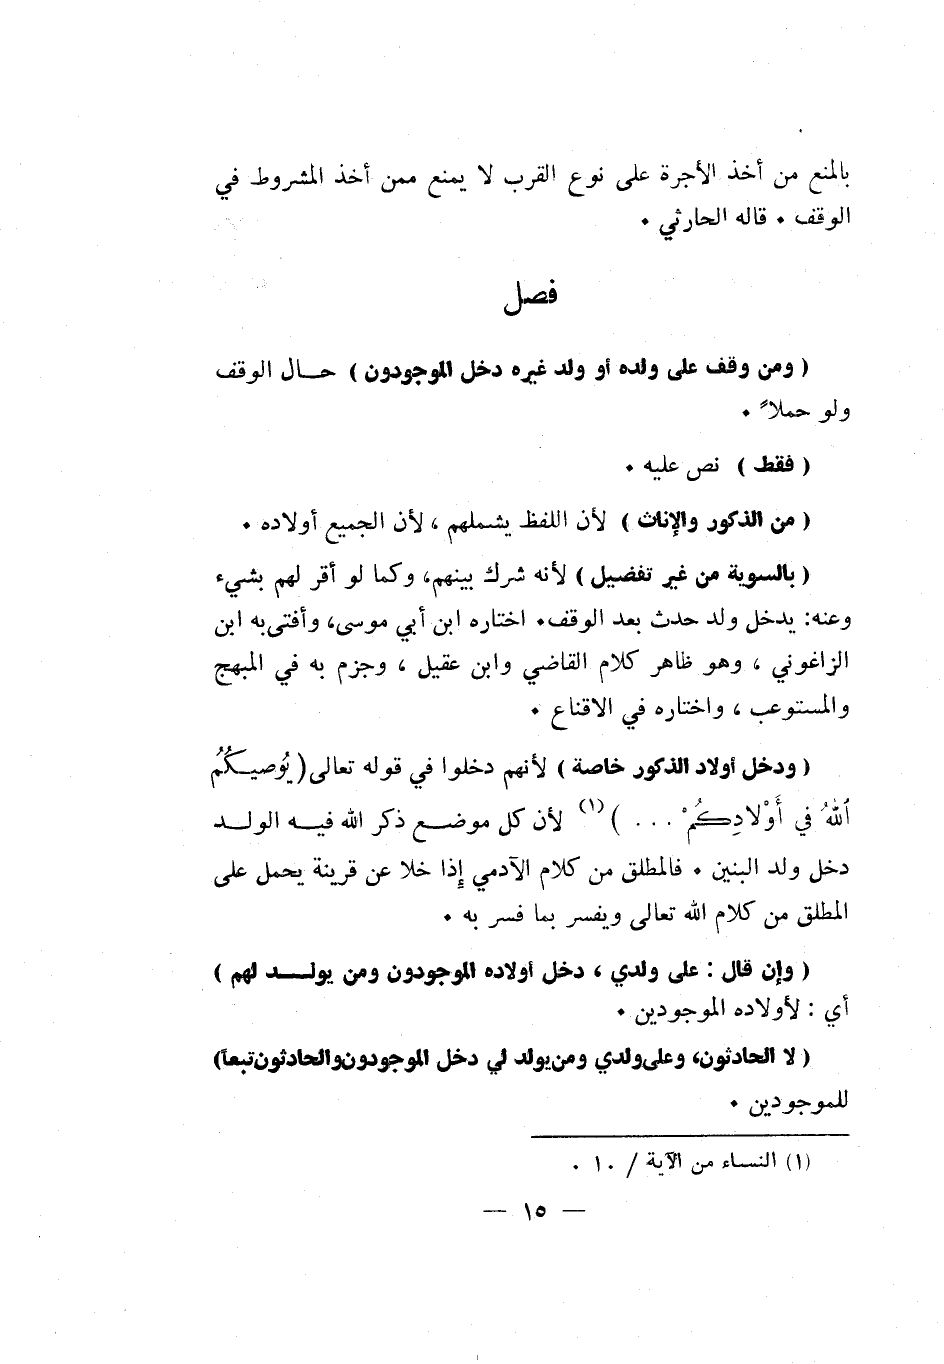 بالمنع من أخذ الأجرة على نوع القرب لا يمنع ممن أخذ المشروط في
الوقف • قاله الحارثي •
فصل
( ومن وقف على ولده أو ولد غيره دخل الموجودون ) حــال الوقف
ولو حملاً •
( فقط ) نص عليه •
( من الذكور والإناث ) لأن اللفظ يشملهم ، لأن الجميع أولاده •
( بالسوية من غير تفضيل ) لأنه شرك بينهم، وكما لو أقر لهم بشيء
وعنه: يدخل ولد حدث بعد الوقف• اختاره ابن أبي موسى، وأفتى به ابن
الزاغوني ، وهو ظاهر كلام القاضي وابن عقيل ، وجزم به في المبهج
والمستوعب ، واختاره في الاقناع •
( ودخل أولاد الذكور خاصة ) لأنهم دخلوا في قوله تعالى ( يُوصيكُمُ
ٱللهُ في أَوْلادِكُمْ ... )(١) لأن كل موضــع ذكر الله فيــه الولــد
دخل ولد البنين • فالمطلق من كلام الآدمي إذا خلا عن قرينة يحمل على
المطلق من كلام الله تعالى ويفسر بما فسر به •
( وإن قال : على ولدي ، دخل أولاده الموجودون ومن يولــد لهم )
أي : لأولاده الموجودين •
( لا الحادثون، وعلى ولدي ومن يولد لي دخل الموجودون والحادثون تبعاً)
للموجودين •
(١) النساء من الآية / ١٠ •
— ١٥ —